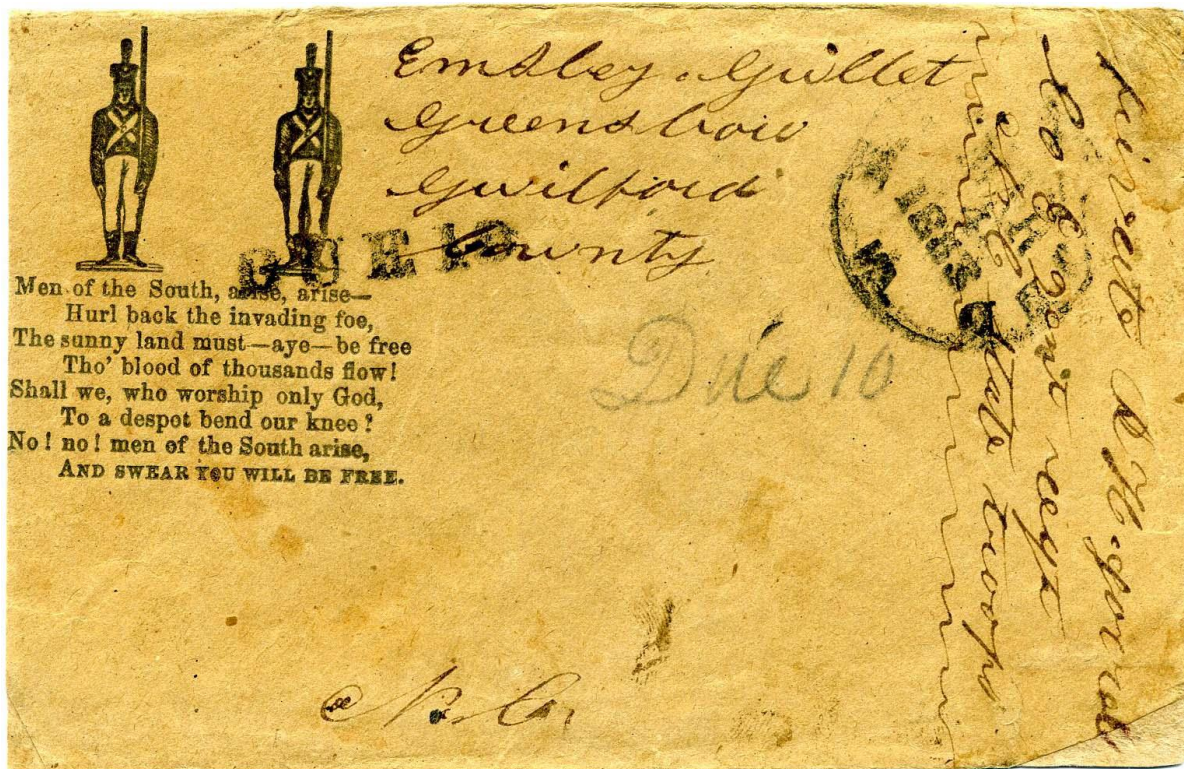 Emsley Gullet
Greensboro
Guilford
County
DUE 10
Men of the South, arise, arise—
Hurl back the invading foe,
The sunny land must—aye—be free
Tho' blood of thousands flow!
Shall we, who worship only God,
To a despot bend our knee?
No! no! men of the South arise,
AND SWEAR YOU WILL BE FREE.
Due 10
N. Ca
private D H
Co E 2nd regt
N C State troops